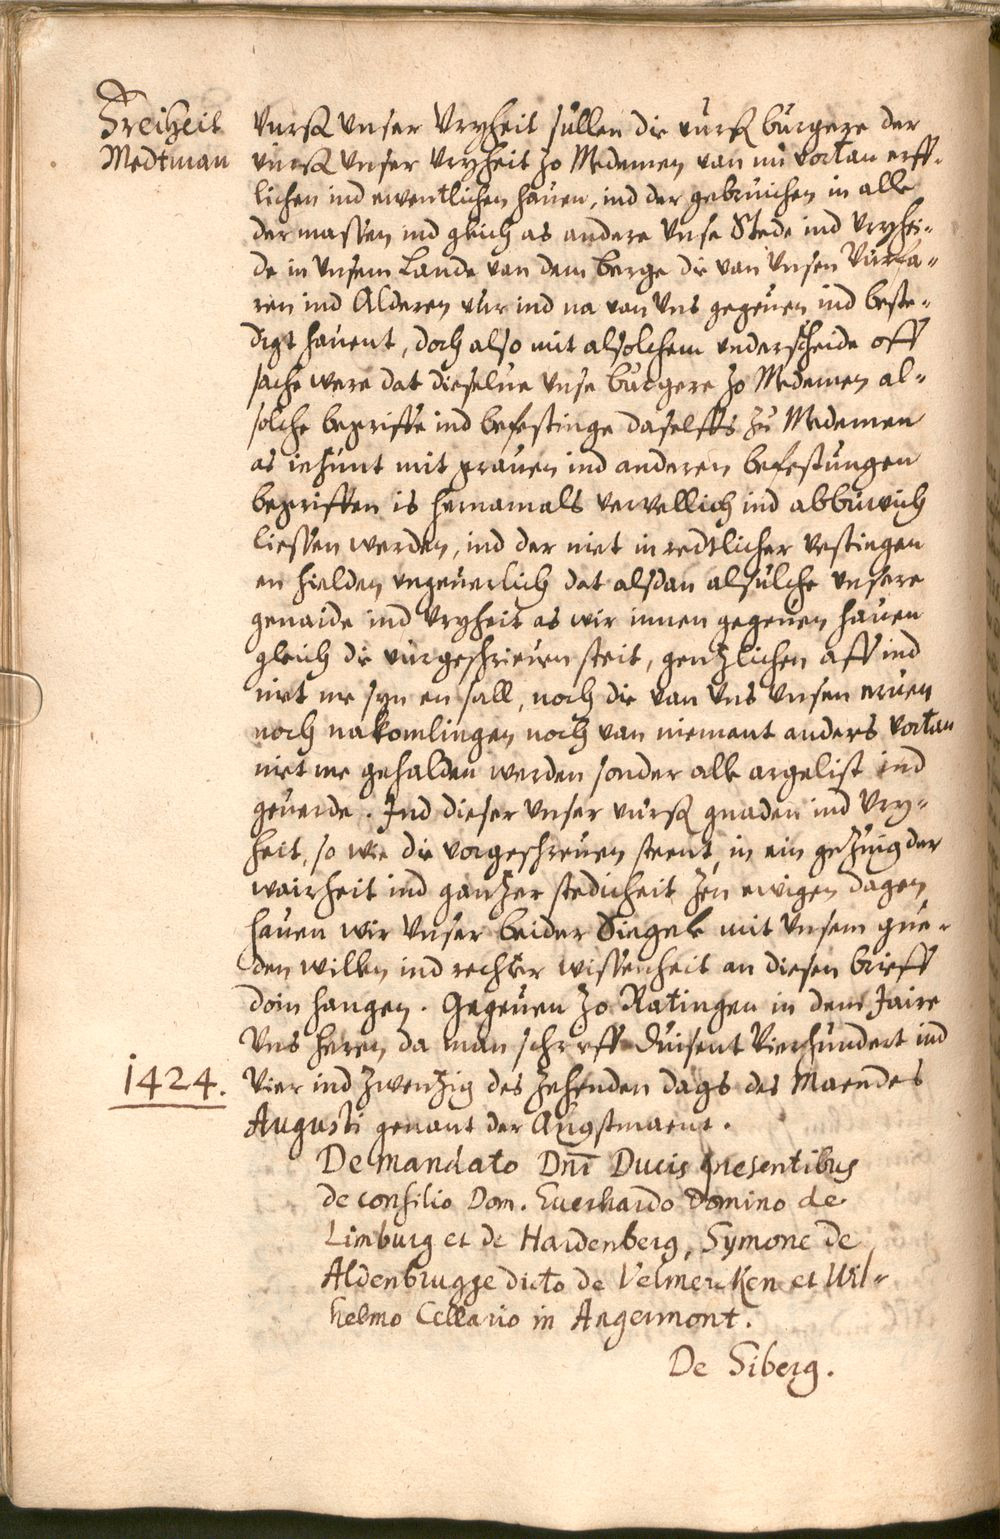 Freiheit
Medtman
vurß unser Vryheit sullen die vurß burgere der
vurß unser Vryheit zo Medemen van nu vortan erff-
lichen ind ewentlichen hauen, ind der gebruichen in alle
der massen ind gleich as andere unse Stede ind Vryhei-
de in unsem Lande van dem Berge die van unsen Vurfa-
ren ind Alderen vur ind na van uns gegeuen ind beste-
digt hauent, doch also mit alsolchem underscheide off
sache were dat dieselue unse burgere zo Medemen al-
solche begriffe ind befestinge daselffs zu Medemen
as iehunt mit grauen ind anderen befestungen
begriffen is hernamals vervellich ind abbuwich
liessen werden, ind der niet in redtlicher vestingen
en hielden ungeuerlich dat alsdan alsulche unsere
genaide ind Vryheit as wir innen gegeuen hauen
gleich die vurgeschrieuen steit, gentzlichen aff ind
niet me syn en sall, noch die van uns unsen eruen
noch nakomlingen noch van niemant anders vortan
niet me gehalden werden sonder alle argelist ind
geuerde. Ind dieser unser vurß gnaden ind Vry-
heit, so wie die vorgeschreuen steent, in ein gezuig der
wairheit ind gantzer stedicheit zen ewigen dagen
hauen wir unser beider Siegele mit unsem gue-
den willen ind rechter wissenheit an diesen brieff
doin hangen. Gegeuen zo Ratingen in dem Jaire
uns heren da man schreff duisent vierhundert ind
1424.
vier ind zwentzig des zehenden dags des Maendes
Augusti genant der Augstmaent.
De mandato Dni Ducis presentibus
de consilio Dom. Euerhardo Domino de
Limburg et de Hardenberg, Symone de
Aldenbrugge dicto de Velmercken et Wil-
helmo Cellario in Angermont.
De Siberg.